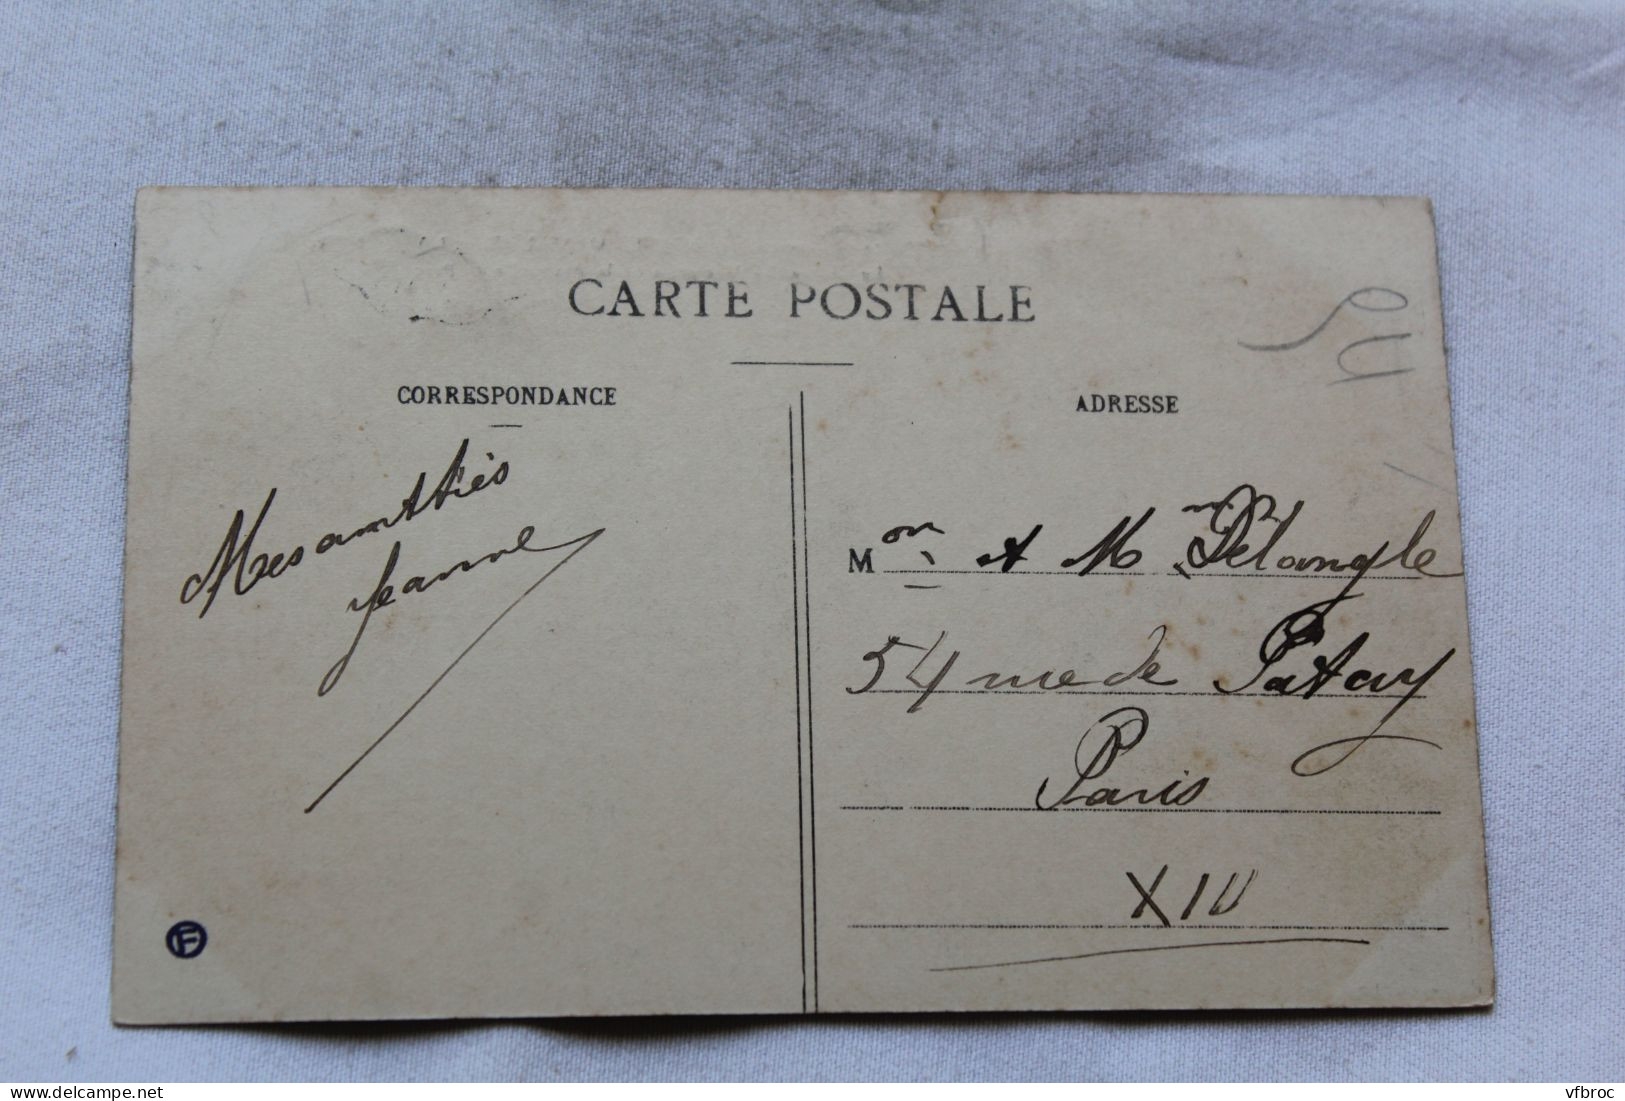 CARTE POSTALE
CORRESPONDANCE
Mes amitiés
Jeanne
ADRESSE
Mon A M
54 rue de Patay
Paris
XIII
F
delcampe.net
vfbroc